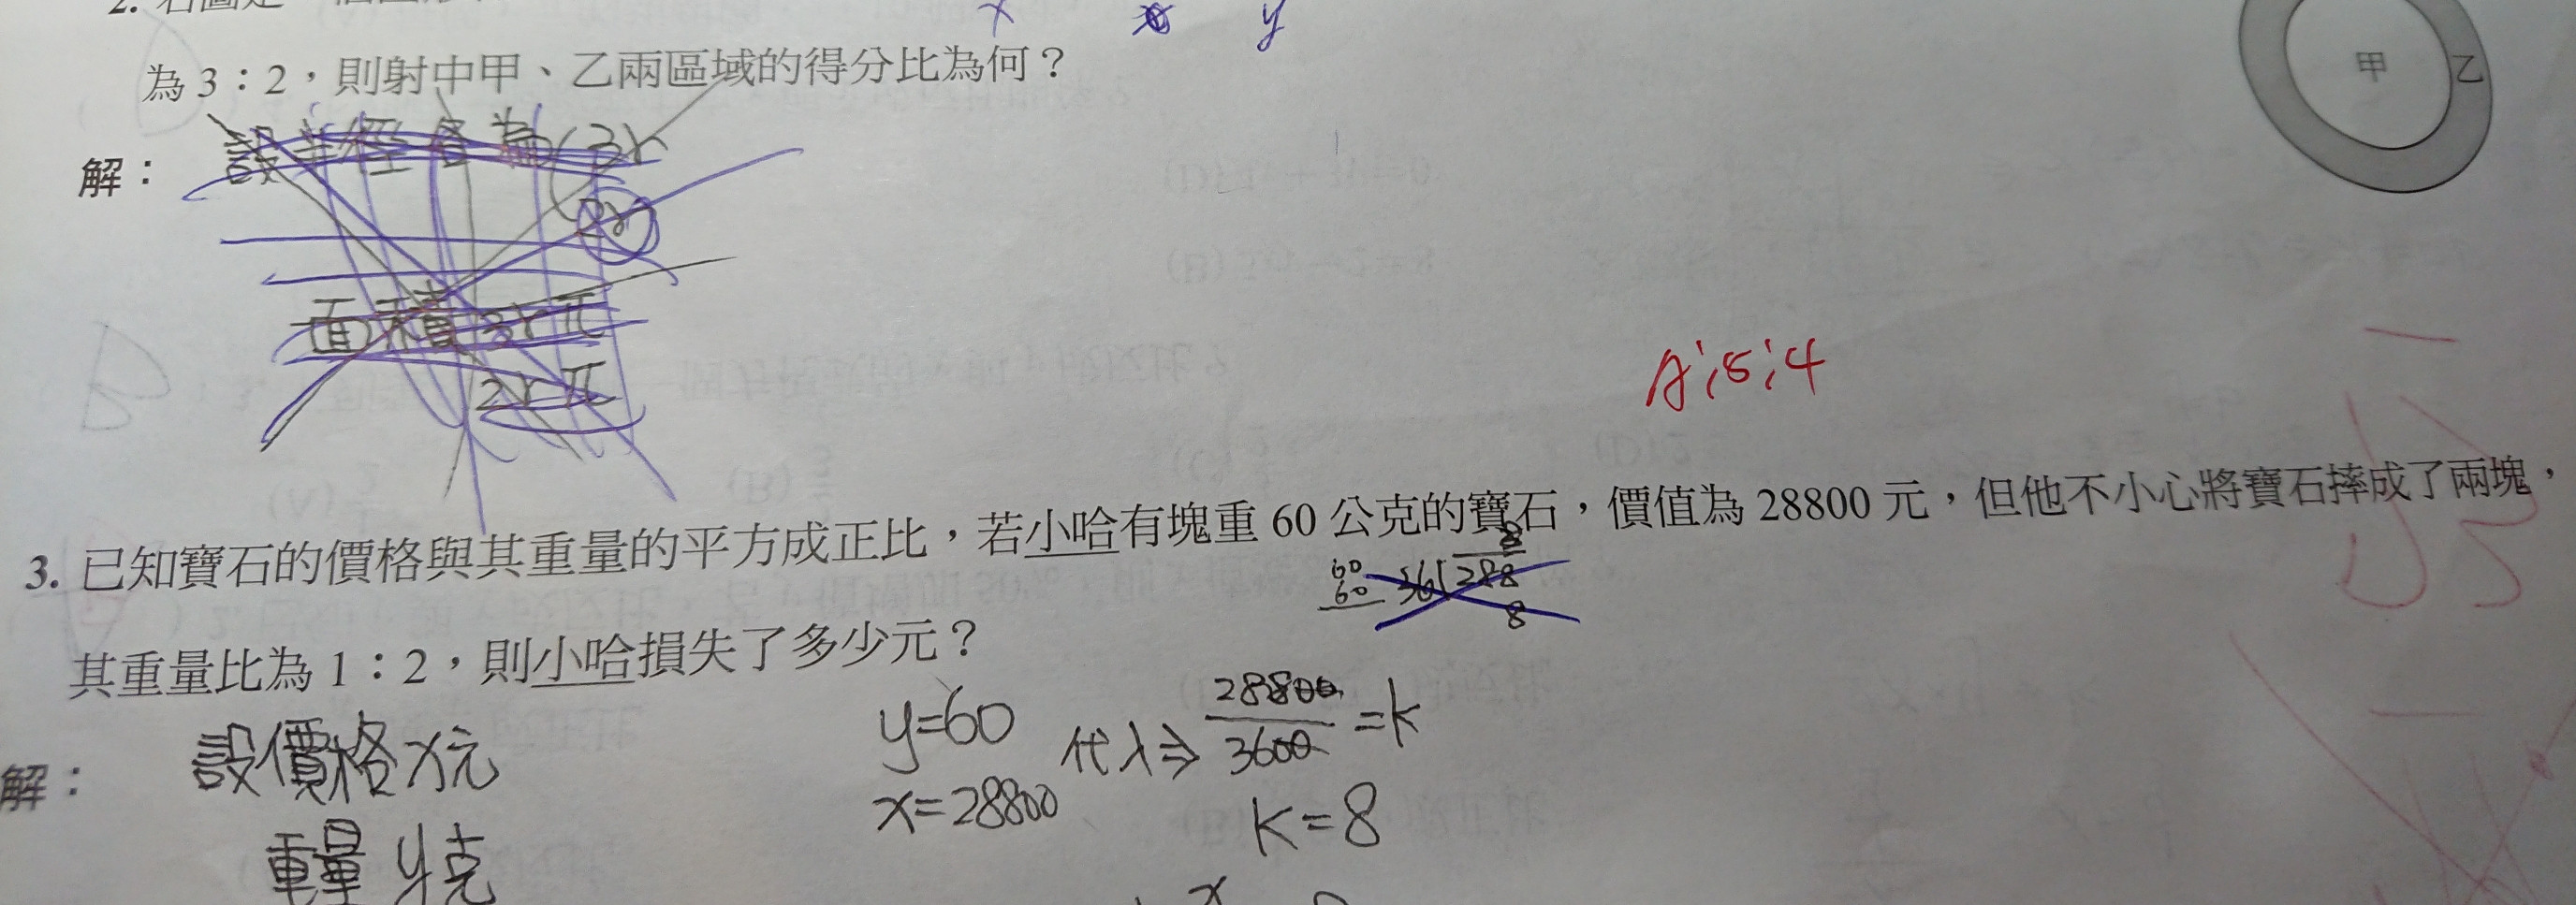 x y
為 3：2，則射中甲、乙兩區域的得分比為何？
甲 乙
解：
設半徑各為(3r
2r
面積 3rπ
2rπ
3. 已知寶石的價格與其重量的平方成正比，若小哈有塊重 60 公克的寶石，價值為 28800 元，但他不小心將寶石摔成了兩塊，
60
60
36 288
8
8
其重量比為 1：2，則小哈損失了多少元？
解：
設價格x元
y=60
代入⇒ 28800/3600 =k
x=28800
k=8
重量 y克